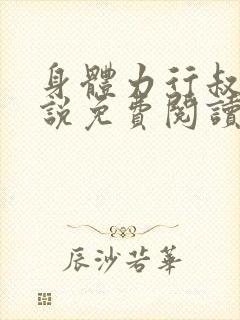 身體力行叔
說免費閱讀
辰沙若華